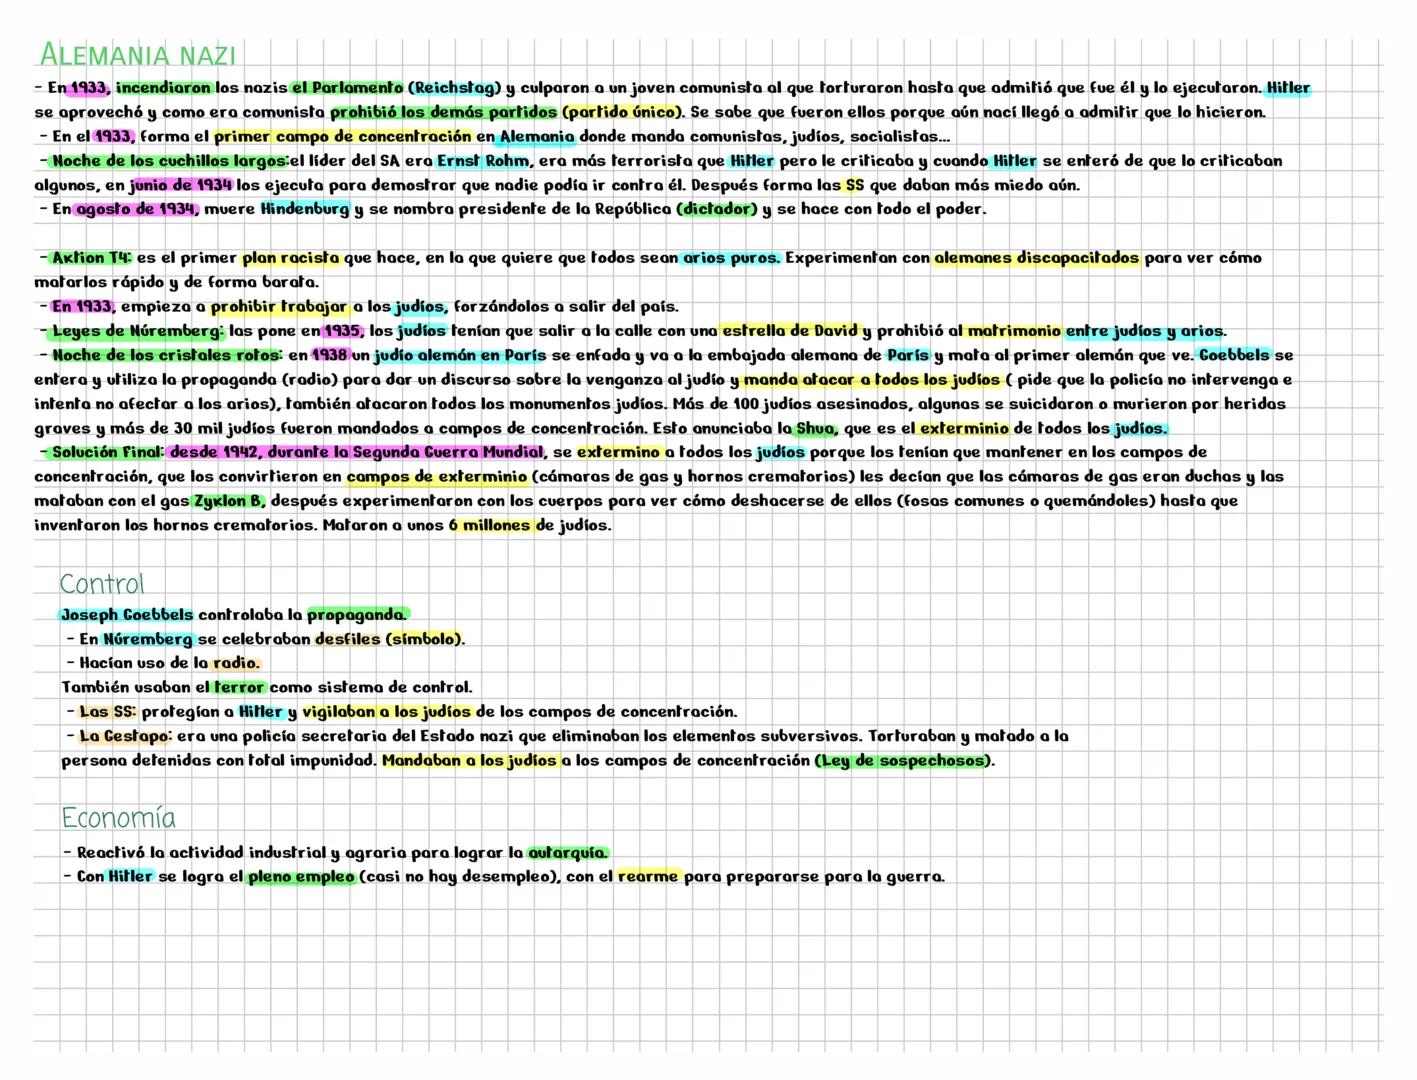 ALEMANIA NAZI
- En 1933, incendiaron los nazis el Parlamento (Reichstag) y culparon a un joven comunista al que torturaron hasta que admitió que fue él y lo ejecutaron. Hitler
se aprovechó y como era comunista prohibió los demás partidos (partido único). Se sabe que fueron ellos porque aún nací llegó a admitir que lo hicieron.
- En el 1933, forma el primer campo de concentración en Alemania donde manda comunistas, judíos, socialistas...
- Noche de los cuchillos largos:el líder del SA era Ernst Rohm, era más terrorista que Hitler pero le criticaba y cuando Hitler se enteró de que lo criticaban
algunos, en junio de 1934 los ejecuta para demostrar que nadie podía ir contra él. Después forma las SS que daban más miedo aún.
- En agosto de 1934, muere Hindenburg y se nombra presidente de la República (dictador) y se hace con todo el poder.
- Aktion T4: es el primer plan racista que hace, en la que quiere que todos sean arios puros. Experimentan con alemanes discapacitados para ver cómo
matarlos rápido y de forma barata.
- En 1933, empieza a prohibir trabajar a los judíos, forzándolos a salir del país.
- Leyes de Núremberg: las pone en 1935, los judíos tenían que salir a la calle con una estrella de David y prohibió al matrimonio entre judíos y arios.
- Noche de los cristales rotos: en 1938 un judío alemán en París se enfada y va a la embajada alemana de París y mata al primer alemán que ve. Goebbels se
entera y utiliza la propaganda (radio) para dar un discurso sobre la venganza al judío y manda atacar a todos los judíos ( pide que la policía no intervenga e
intenta no afectar a los arios), también atacaron todos los monumentos judíos. Más de 100 judíos asesinados, algunas se suicidaron o murieron por heridas
graves y más de 30 mil judíos fueron mandados a campos de concentración. Esto anunciaba la Shua, que es el exterminio de todos los judíos.
- Solución Final: desde 1942, durante la Segunda Guerra Mundial, se extermino a todos los judíos porque los tenían que mantener en los campos de
concentración, que los convirtieron en campos de exterminio (cámaras de gas y hornos crematorios) les decían que las cámaras de gas eran duchas y las
mataban con el gas Zyklon B, después experimentaron con los cuerpos para ver cómo deshacerse de ellos (fosas comunes o quemándoles) hasta que
inventaron los hornos crematorios. Mataron a unos 6 millones de judíos.
Control
Joseph Goebbels controlaba la propaganda.
- En Núremberg se celebraban desfiles (símbolo).
- Hacían uso de la radio.
También usaban el terror como sistema de control.
- Las SS: protegían a Hitler y vigilaban a los judíos de los campos de concentración.
- La Gestapo: era una policía secretaria del Estado nazi que eliminaban los elementos subversivos. Torturaban y matado a la
persona detenidas con total impunidad. Mandaban a los judíos a los campos de concentración (Ley de sospechosos).
Economía
- Reactivó la actividad industrial y agraria para lograr la autarquía.
- Con Hitler se logra el pleno empleo (casi no hay desempleo), con el rearme para prepararse para la guerra.